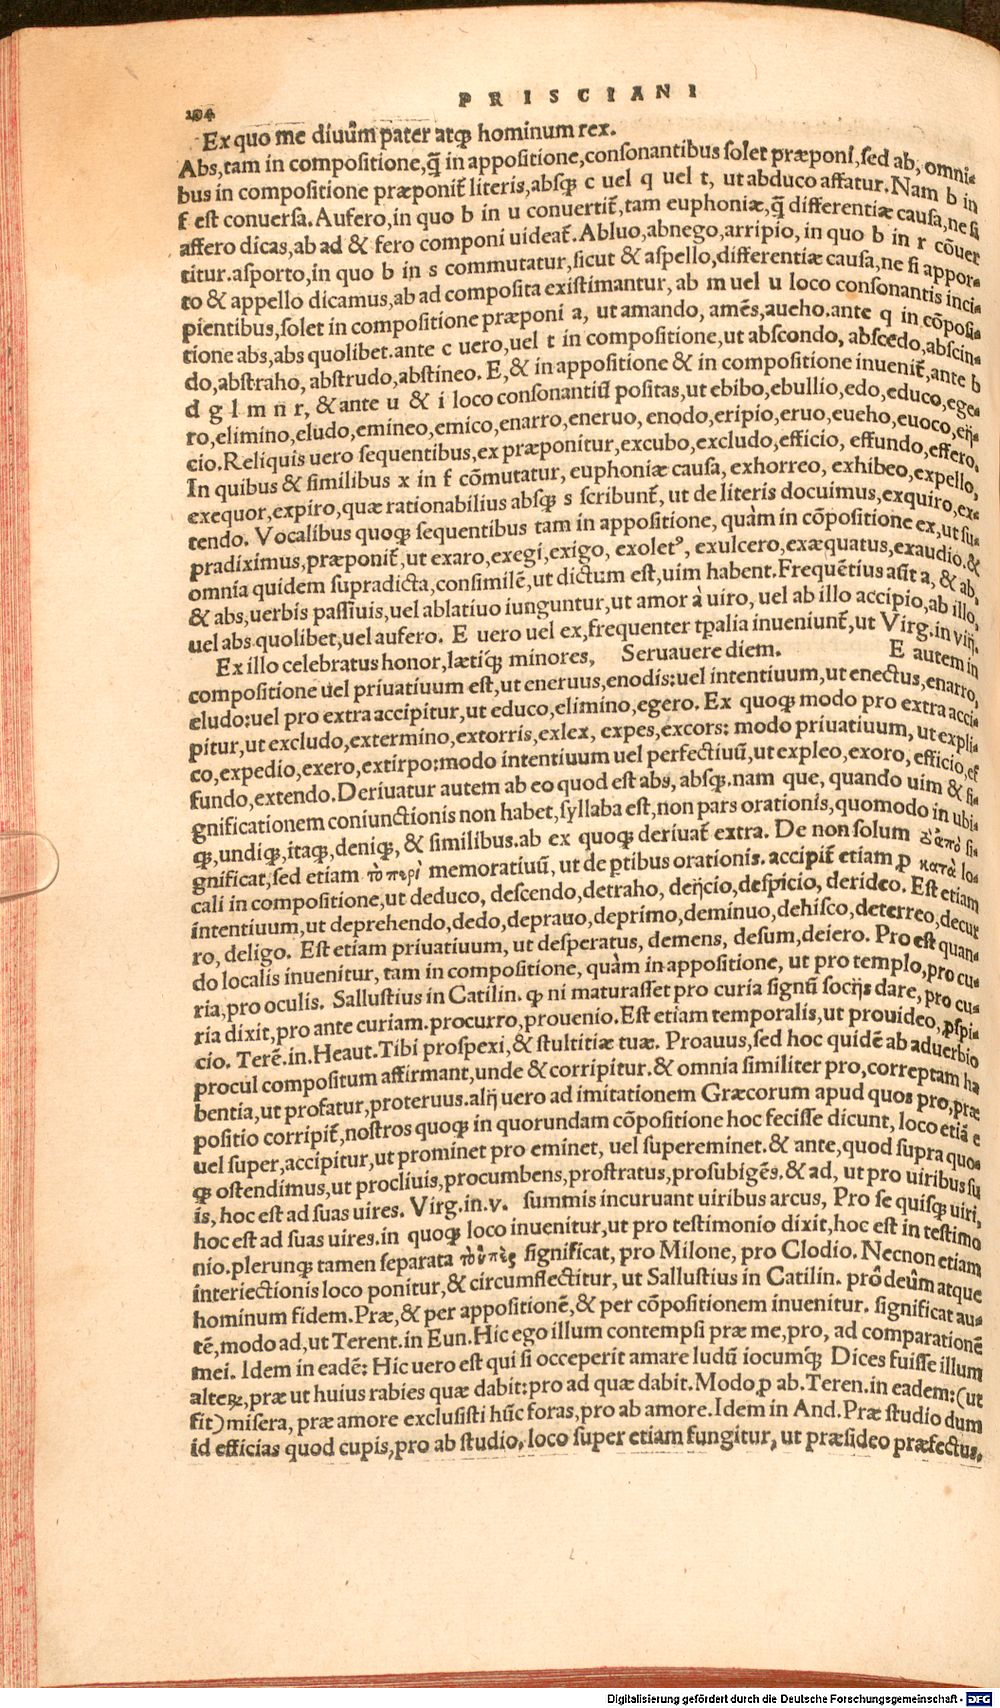 PRISCIANI
194
Ex quo me diuûm pater atq; hominum rex.
Abs,tam in compositione,q̃ in appositione,consonantibus solet præponi,sed ab, omni-
bus in compositione præponit̃ literis,absq; c uel q uel t, ut abduco affatur. Nam b in
f est conuersa. Aufero,in quo b in u conuertit̃,tam euphoniæ,q̃ differentiæ causa,ne si
affero dicas,ab ad & fero componi uideat̃. Abluo,abnego,arripio, in quo b in r cõuer
titur.asporto,in quo b in s commutatur,sicut & aspello,differentiæ causa,ne si appor-
to & appello dicamus,ab ad composita existimantur, ab m uel u loco consonantis inci-
pientibus,solet in compositione præponi a, ut amando, amẽs,aueho.ante q in cõposi-
tione abs,abs quolibet.ante c uero,uel t in compositione,ut abscondo, abscedo,abscin-
do,abstraho, abstrudo,abstineo. E,& in appositione & in compositione inuenit̃,ante b
d g l m n r, & ante u & i loco consonantiũ positas,ut ebibo,ebullio,edo,educo,ege-
ro,elimino,eludo,emineo,emico,enarro,eneruo, enodo,eripio,eruo,eueho,euoco,eij-
cio.Reliquis uero sequentibus,ex præponitur,excubo,excludo,efficio, effundo,effero.
In quibus & similibus x in f cõmutatur, euphoniæ causa, exhorreo, exhibeo,expello,
exequor,expiro,quæ rationabilius absq; s scribunt̃, ut de literis docuimus,exquiro,ex-
tendo. Vocalibus quoq; sequentibus tam in appositione, quàm in cõpositione ex,ut su-
pradiximus,præponit̃,ut exaro,exegi,exigo, exolet⁹, exulcero,exæquatus,exaudio.&
omnia quidem supradicta,consimilẽ,ut dictum est,uim habent.Frequẽtius aũt a, & ab,
& abs,uerbis passiuis,uel ablatiuo iunguntur,ut amor à uiro, uel ab illo accipio,ab illo,
uel abs quolibet,uel aufero. E uero uel ex,frequenter tp̃alia inueniunt̃,ut Virg.in viij.
Ex illo celebratus honor,lætiq́; minores, Seruauere diem. E autem in
compositione uel priuatiuum est,ut eneruus,enodis:uel intentiuum,ut enectus,enarro,
eludo:uel pro extra accipitur,ut educo,elimino,egero. Ex quoq; modo pro extra acci
pitur,ut excludo,extermino,extorris,exlex, expes,excors: modo priuatiuum, ut expli-
co,expedio,exero,extirpo:modo intentiuum uel perfectiuũ,ut expleo,exoro, efficio,ef
fundo,extendo.Deriuatur autem ab eo quod est abs, absq;.nam que, quando uim & si-
gnificationem coniunctionis non habet,syllaba est,non pars orationis,quomodo in ubi-
q;,undiq;,itaq;,deniq;, & similibus.ab ex quoq; deriuat̃ extra. De non solum ἀπὸ si-
gnificat,sed etiam τὸ περὶ memoratiuũ, ut de ꝑtibus orationis. accipit̃ etiam ꝓ κατὰ lo-
cali in compositione,ut deduco, descendo,detraho, deijcio,despicio, derideo. Est etiam
intentiuum,ut deprehendo,dedo,deprauo,deprimo,deminuo,dehisco,deterreo,decur
ro, deligo. Est etiam priuatiuum, ut desperatus, demens, desum,deiero. Pro est quan-
do localis inuenitur, tam in compositione, quàm in appositione, ut pro templo,pro cu-
ria,pro oculis. Sallustius in Catilin. q̃ ni maturasset pro curia signũ socijs dare, pro cu-
ria dixit,pro ante curiam.procurro,prouenio.Est etiam temporalis,ut prouideo, ꝓspi-
cio. Terẽ.in.Heaut.Tibi prospexi,& stultitiæ tuæ. Proauus,sed hoc quidẽ ab aduerbio
procul compositum affirmant,unde & corripitur.& omnia similiter pro,correptam ha
bentia,ut profatur,proteruus.alij uero ad imitationem Græcorum apud quos pro,præ
positio corripit̃,nostros quoq; in quorundam cõpositione hoc fecisse dicunt, loco etiã e
uel super,accipitur,ut prominet pro eminet, uel supereminet.& ante,quod supra quo-
q; ostendimus,ut procliuis,procumbens,prostratus,prosubigẽs.& ad, ut pro uiribus su
is, hoc est ad suas uires. Virg.in.v. summis incuruant uiribus arcus, Pro se quisq; uiri,
hoc est ad suas uires.in quoq; loco inuenitur,ut pro testimonio dixit,hoc est in testimo
nio.plerunq; tamen separata τὸ ὑπὲρ significat, pro Milone, pro Clodio. Necnon etiam
interiectionis loco ponitur,& circumflectitur, ut Sallustius in Catilin. prô deûm atque
hominum fidem. Præ,& per appositionẽ,& per cõpositionem inuenitur. significat au-
tẽ,modo ad,ut Terent.in Eun.Hic ego illum contempsi præ me,pro, ad comparationẽ
mei. Idem in eadẽ: Hic uero est qui si occeperit amare ludũ iocumq́; Dices fuisse illum
alteꝝ,præ ut huius rabies quæ dabit:pro ad quæ dabit.Modo ꝓ ab.Teren.in eadem:(ut
fit)misera, præ amore exclusisti hũc foras,pro ab amore.Idem in And.Præ studio dum
id efficias quod cupis,pro ab studio, loco super etiam fungitur, ut præsideo præfectus.
Digitalisierung gefördert durch die Deutsche Forschungsgemeinschaft - DFG